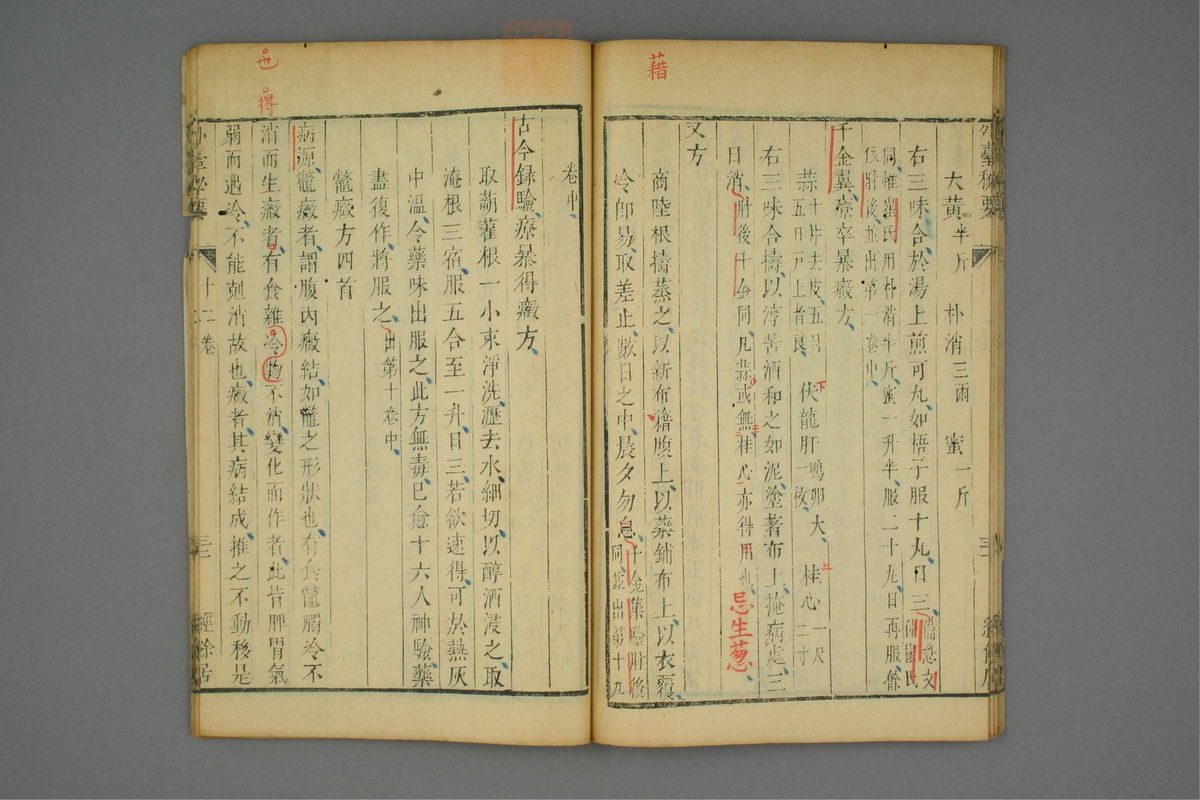 藉
外臺秘要
大黄半斤 朴消三兩 蜜一斤
右三味合於湯上煎可丸如梧子服十丸日三備急文
仲崔氏
同惟崔氏用朴消半斤蜜一升半服二十九日再服餘
依肘後並出第一卷中
千金翼療卒暴癥方
蒜十片去皮五月
五日戸上者良 伏龍肝鴨卵大
一枚 桂心一尺
二寸
右三味合擣以淳苦酒和之如泥塗著布上掩病處三
日消肘後千金同凡蒜或無桂心亦得用也忌生葱
又方
商陸根擣蒸之以新布籍腹上以藥鋪布上以衣覆
冷即易取差止數日之中晨夕勿息千金集驗肘後
同並出第十九
卷中
古今録驗療暴得癥方
取蒴藋根一小束淨洗瀝去水細切以醇酒浸之取
淹根三宿服五合至一升日三若欲速得可於熱灰
中温令藥味出服之此方無毒已愈十六人神驗藥
盡復作將服之出第十卷中
鼈癥方四首
病源鼈癥者謂腹内癥結如鼈之形狀也有食鼈觸冷不
消而生癥者有食雜冷物不消變化而作者此皆脾胃氣
弱而遇冷不能剋消故也癥者其病結成推之不動移是
也
得
外臺秘要
十二卷
經餘居